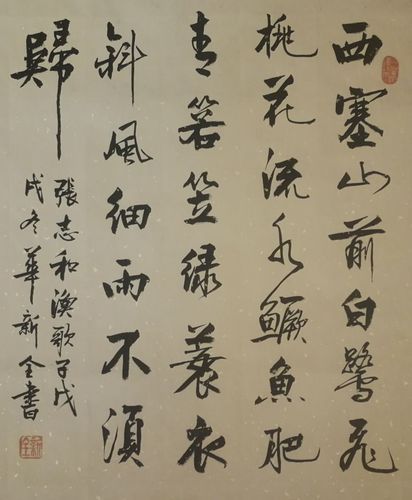 西塞山前白鹭飛
桃花流水鳜魚肥
青箬笠绿蓑衣
斜風细雨不須
歸
張志和渔歌子戊
戌冬華新全書